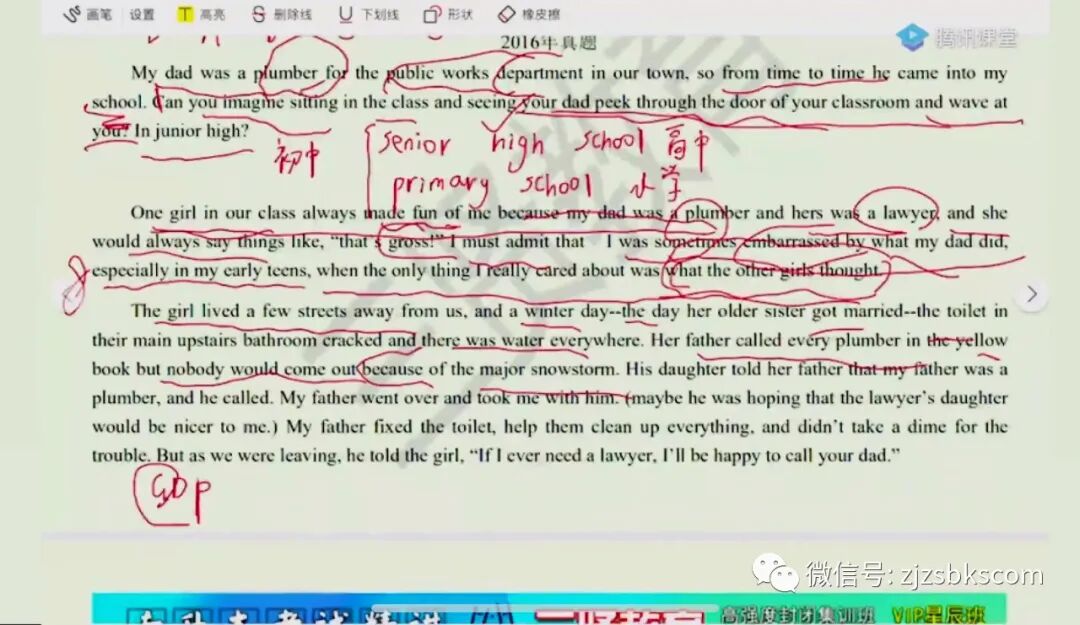 画笔 设置 高亮 删除线 下划线 形状 橡皮擦
腾讯课堂
2016年真题
My dad was a plumber for the public works department in our town, so from time to time he came into my
school. Can you imagine sitting in the class and seeing your dad peek through the door of your classroom and wave at
you? In junior high?
初中
senior high school 高中
primary school 小学
One girl in our class always made fun of me because my dad was a plumber and hers was a lawyer, and she
would always say things like, “that’s gross!” I must admit that I was sometimes embarrassed by what my dad did,
especially in my early teens, when the only thing I really cared about was what the other girls thought.
The girl lived a few streets away from us, and a winter day--the day her older sister got married--the toilet in
their main upstairs bathroom cracked and there was water everywhere. Her father called every plumber in the yellow
book but nobody would come out because of the major snowstorm. His daughter told her father that my father was a
plumber, and he called. My father went over and took me with him. (maybe he was hoping that the lawyer’s daughter
would be nicer to me.) My father fixed the toilet, help them clean up everything, and didn’t take a dime for the
trouble. But as we were leaving, he told the girl, “If I ever need a lawyer, I’ll be happy to call your dad.”
GDP
微信号: zjzsbkscom
高强度封闭集训班 VIP星辰班